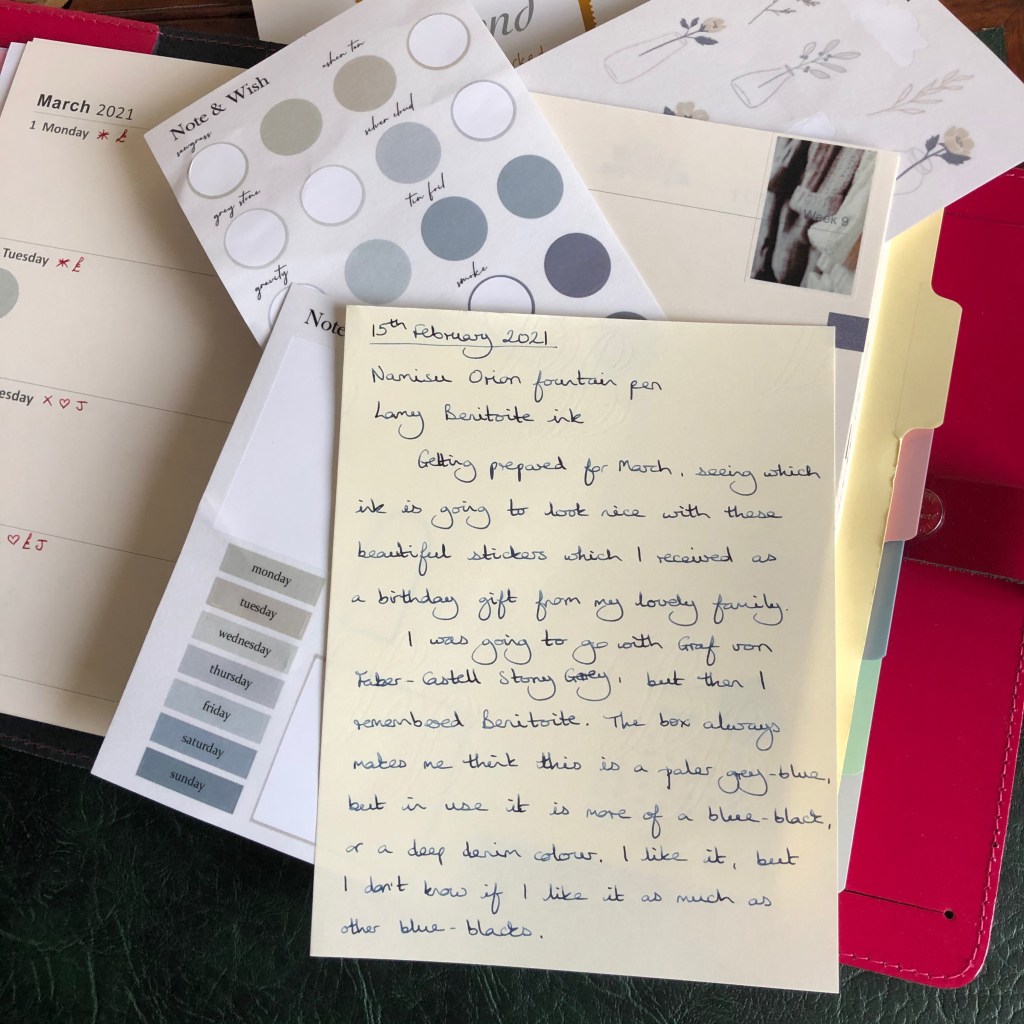 March 2021
1 Monday * £
Tuesday * £
esday x ♡ J
♡ £ J
Note & Wish
ashen tan
sawgrass
silver cloud
grey stone
tin foil
gravity
smoke
nd
cked
Week 9
Note
monday
tuesday
wednesday
thursday
friday
saturday
sunday
15th February 2021
Namisu Orion fountain pen
Lamy Benitoite ink
Getting prepared for March, seeing which
ink is going to look nice with these
beautiful stickers which I received as
a birthday gift from my lovely family.
I was going to go with Graf von
Faber-Castell Stony Grey, but then I
remembered Benitoite. The box always
makes me think this is a paler grey-blue,
but in use it is more of a blue-black,
or a deep denim colour. I like it, but
I don't know if I like it as much as
other blue-blacks.